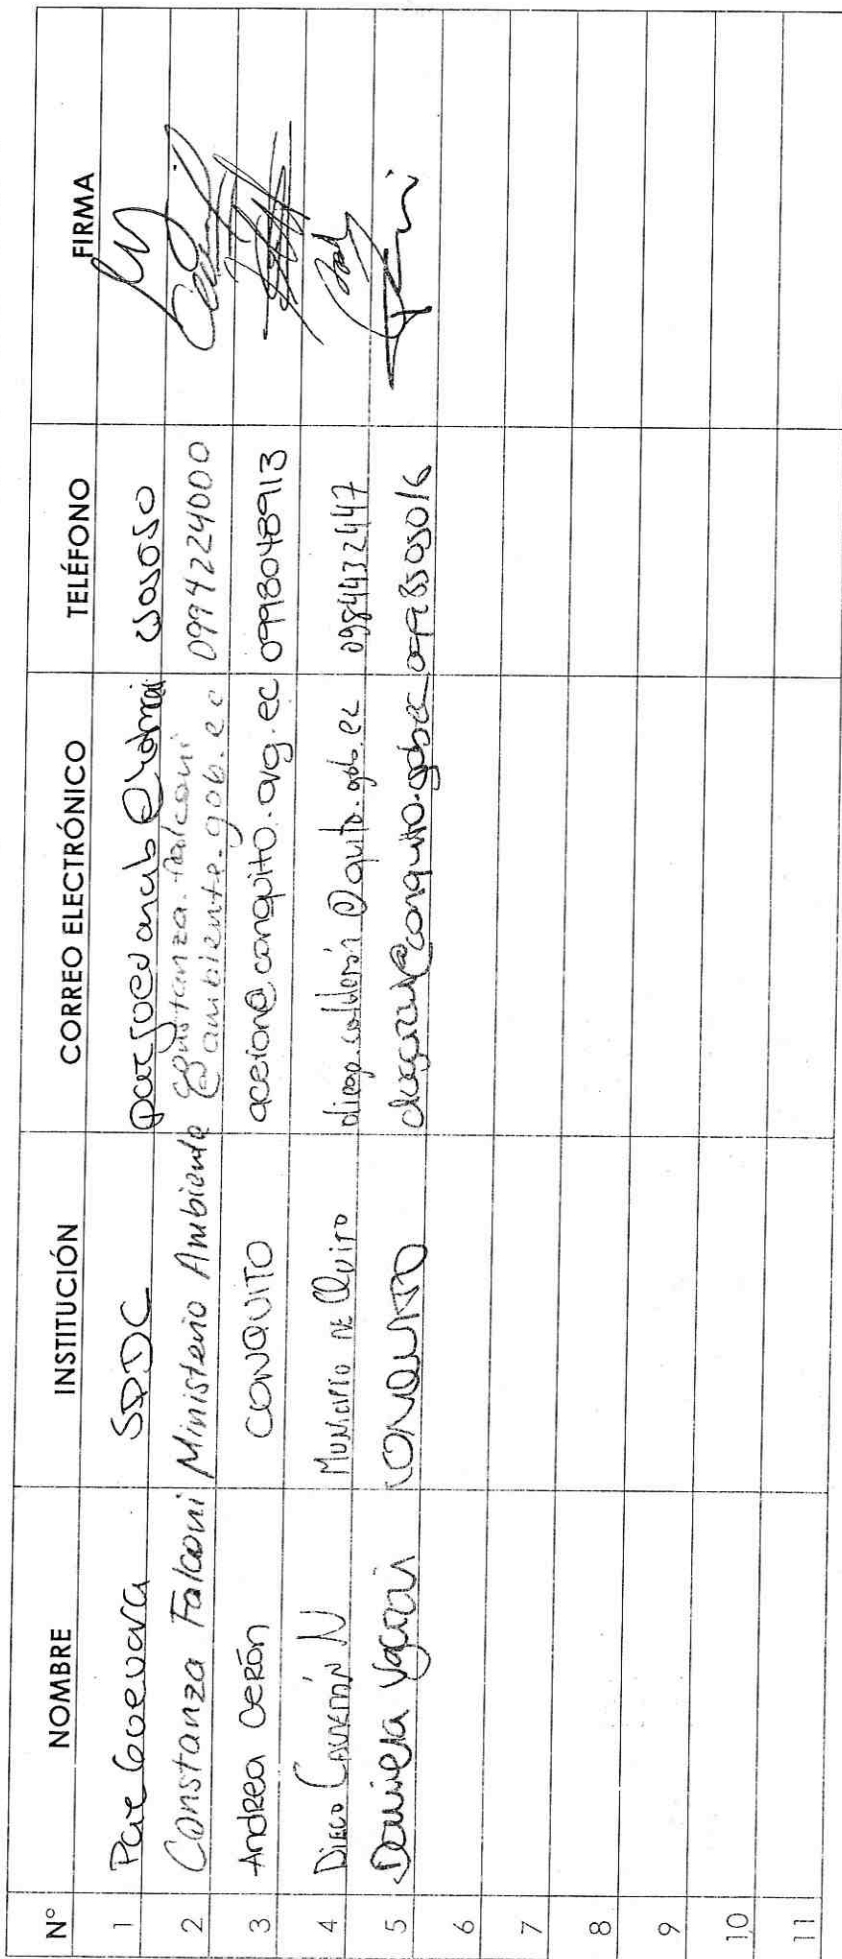 N° NOMBRE INSTITUCIÓN CORREO ELECTRÓNICO TELÉFONO FIRMA
1 Pare Guevara SDDC
2 Constanza Falconi Ministerio Ambiente constanza.falconi @ambiente.gob.ec 0994224000
3 Andrea Cerón CONQUITO aceron@conquito.org.ec 0998048913
4 Diego Calderón N Municipio de Quito diego.calderon@quito.gob.ec 0984432447
5 Daniela CONQUITO
6
7
8
9
10
11